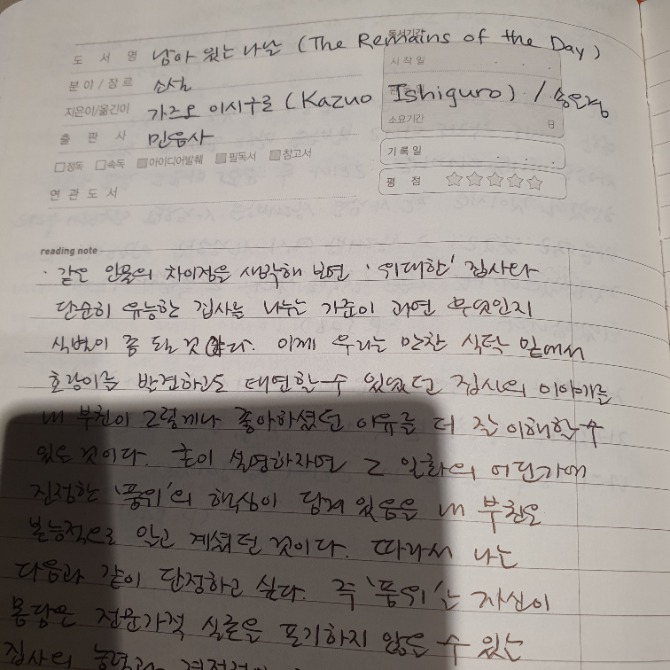 도 서 명 남아 있는 나날 (The Remains of the Day)
독서기간
시작일 . .
분야/장르 소설
지은이/옮긴이 가즈오 이시구로 (Kazuo Ishiguro) / 송은경
소요기간 일
출 판 사 민음사
□정독 □속독 ■아이디어발췌 ■필독서 ■참고서
기록일 . .
연 관 도 서
평 점 ☆☆☆☆☆
reading note
· 같은 인물의 차이점을 생각해 보면 '위대한' 집사와
단순히 유능한 집사를 나누는 기준이 과연 무엇인지
식별이 좀 될 것 같다. 이제 우리는 만찬 식탁 밑에서
호랑이를 발견하고도 태연할 수 있었던 집사의 이야기를
내 부친이 그렇게나 좋아하셨던 이유를 더 잘 이해할 수
있는 것이다. 혼이 설명하자면 그 일화의 어딘가에
진정한 '품위'의 핵심이 담겨 있음을 내 부친은
본능적으로 알고 계셨던 것이다. 따라서 나는
다음과 같이 단정하고 싶다. 즉 '품위'는 자신이
몸담은 전문가적 실존을 포기하지 않을 수 있는
집사의 능력과